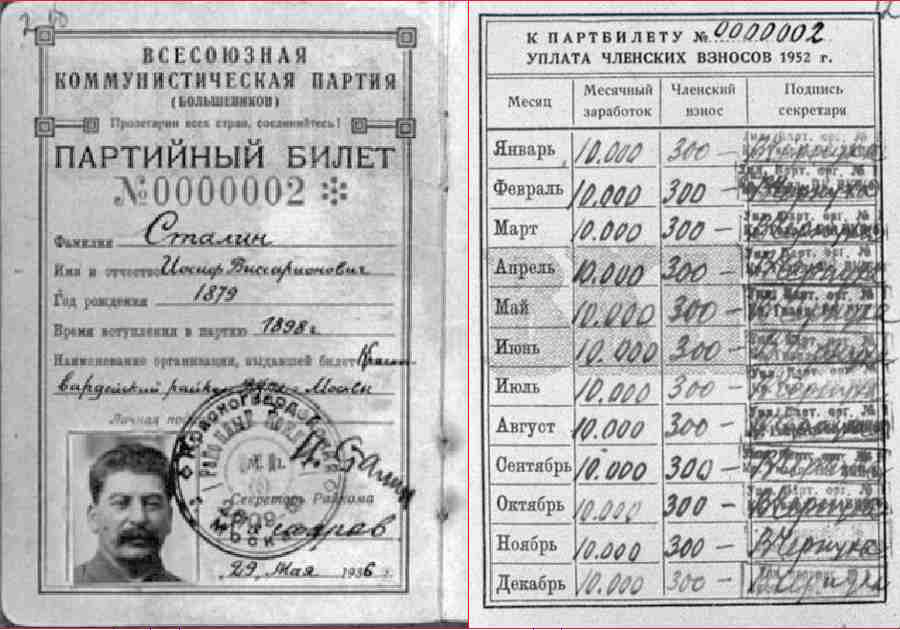 ВСЕСОЮЗНАЯ
КОММУНИСТИЧЕСКАЯ ПАРТИЯ
(БОЛЬШЕВИКОВ)
Пролетарии всех стран, соединяйтесь!
ПАРТИЙНЫЙ БИЛЕТ
№0000002
Фамилия Сталин
Имя и отчество Иосиф Виссарионович
Год рождения 1879
Время вступления в партию 1898г.
Наименование организации, выдавшей билет Красно
вардейский Москвы
Личная
И. Сталин
М. П.
Секретарь Райкома
29 Мая 1936 г.
К ПАРТБИЛЕТУ №0000002
УПЛАТА ЧЛЕНСКИХ ВЗНОСОВ 1952 г.
Месяц Месячный заработок Членский взнос Подпись секретаря
Январь 10.000 300 —
Февраль 10.000 300 —
Март 10.000 300 —
Апрель 10.000 300 —
Май 10.000 300 —
Июнь 10.000 300 —
Июль 10.000 300 —
Август 10.000 300 —
Сентябрь 10.000 300 —
Октябрь 10.000 300 —
Ноябрь 10.000 300 —
Декабрь 10.000 300 —